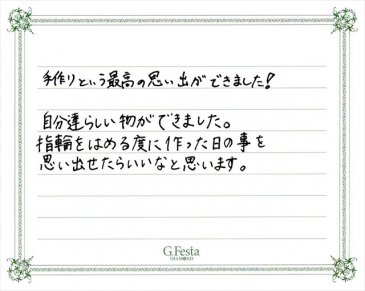 手作りという最高の思い出ができました!
自分達らしい物ができました。
指輪をはめる度に作った日の事を
思い出せたらいいなと思います。
G.Festa
DIAMOND